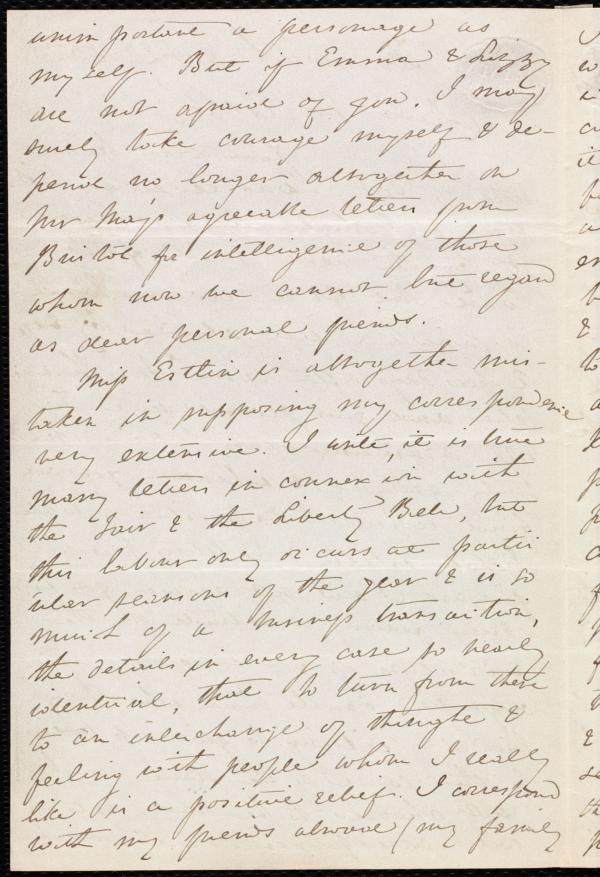 unimportant a personage as
myself. But if Emma & Lizzy
are not afraid of you, I may
surely take courage myself & de-
pend no longer altogether on
Mr May's agreeable letters from
Bristol for intelligence of those
whom now we cannot but regard
as dear personal friends.
Miss Estlin is altogether mis-
taken in supposing my correspondence
very extensive. I write, it is true
many letters in connexion with
the Fair & the Liberty Bell, but
this labour only occurs at partic
ular seasons of the year & is so
much of a business transaction,
the details in every case so nearly
identical, that to turn from these
to an interchange of thought &
feeling with people whom I really
like is a positive relief. I correspond
with my friends abroad (my family